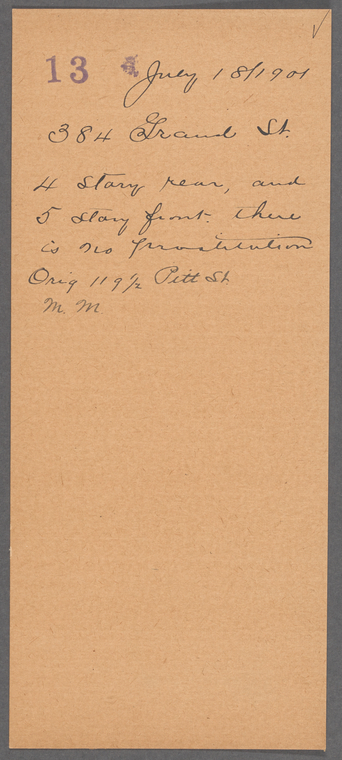 13 July 18/1901
384 Grand St.
4 Story rear, and
5 Story front. there
is no prostitution
Orig 119 1/2 Pitt St
M. M